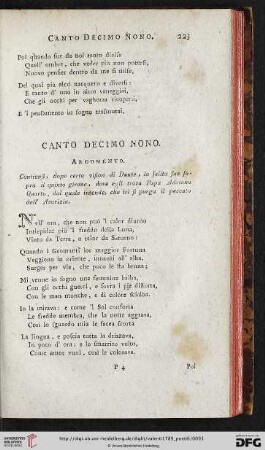 CANTO DECIMO NONO. 223
Poi quando fur da noi tanto divise
Quell' ombre, che veder più non potersi,
Nuovo pensier dentro da me si mise,
Del qual più altri nacquero e diversi:
E tanto d' uno in altro vaneggiai,
Che gli occhi per vaghezza ricopersi,
E 'l pensamento in sogno trasmutai.
CANTO DECIMO NONO.
ARGOMENTO.
Contiensi, dopo certa visione di Dante, la salita sua so-
pra il quinto girone, dove egli trova Papa Adriano
Quinto, dal quale intende, che ivi si purga il peccato
dell' Avarizia.
Nell' ora, che non può 'l calor diurno
Intiepidar più 'l freddo della Luna,
Vinto da Terra, o talor da Saturno:
Quando i Geomanti lor maggior Fortuna
Veggiono in oriente, innanzi all' alba,
Surger per via, che poco le sta bruna;
Mi venne in sogno una femmina balba,
Con gli occhi guerci, e sovra i piè distorta,
Con le man monche, e di colore scialba.
Io la mirava: e come 'l Sol conforta
Le fredde membra, che la notte aggrava,
Così lo sguardo mio le facea scorta
La lingua, e poscia tutta la drizzava,
In poco d' ora: e lo smarrito volto,
Come amor vuol, così le colorava.
P 4 Poi
UNIVERSITÄTS-
BIBLIOTHEK
HEIDELBERG
© Universitätsbibliothek Heidelberg
DFG